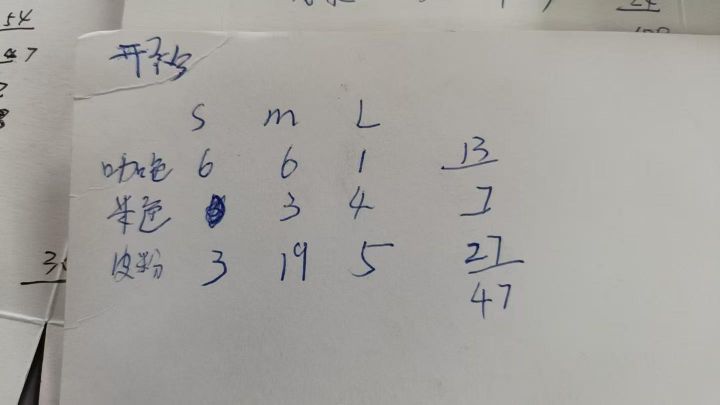 54
47
开衫
S m L
咖色 6 6 1 13
米色 3 4 7
皮粉 3 19 5 27
47